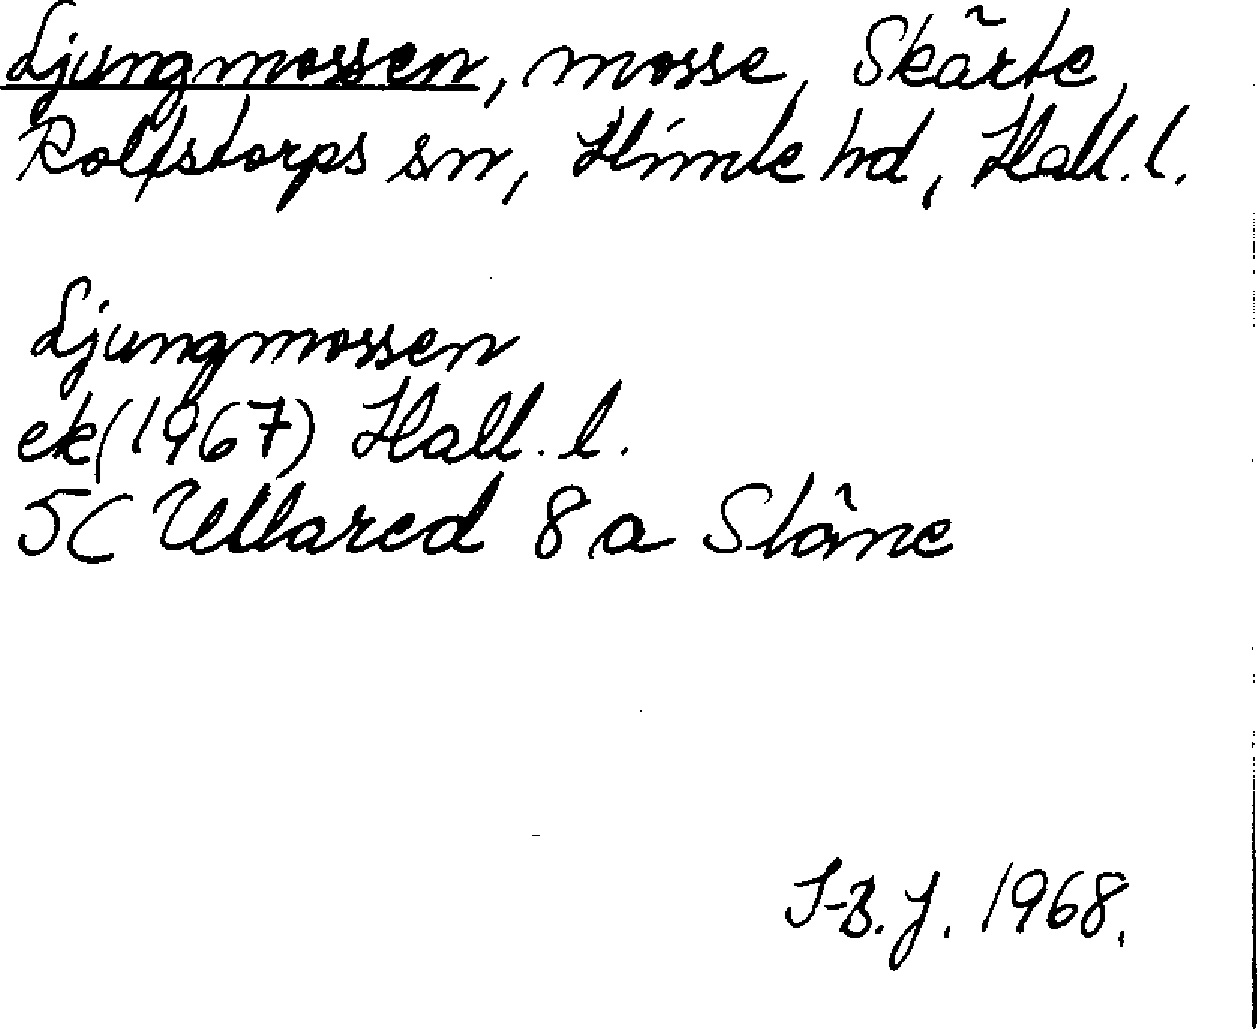 Ljungmossen, mosse, Skärte,
Rolfstorps sn, Himle hd, Hall. l.
Ljungmossen
ek (1967) Hall. l.
5C Ullared 8 a Stäne
J-B. J. 1968.